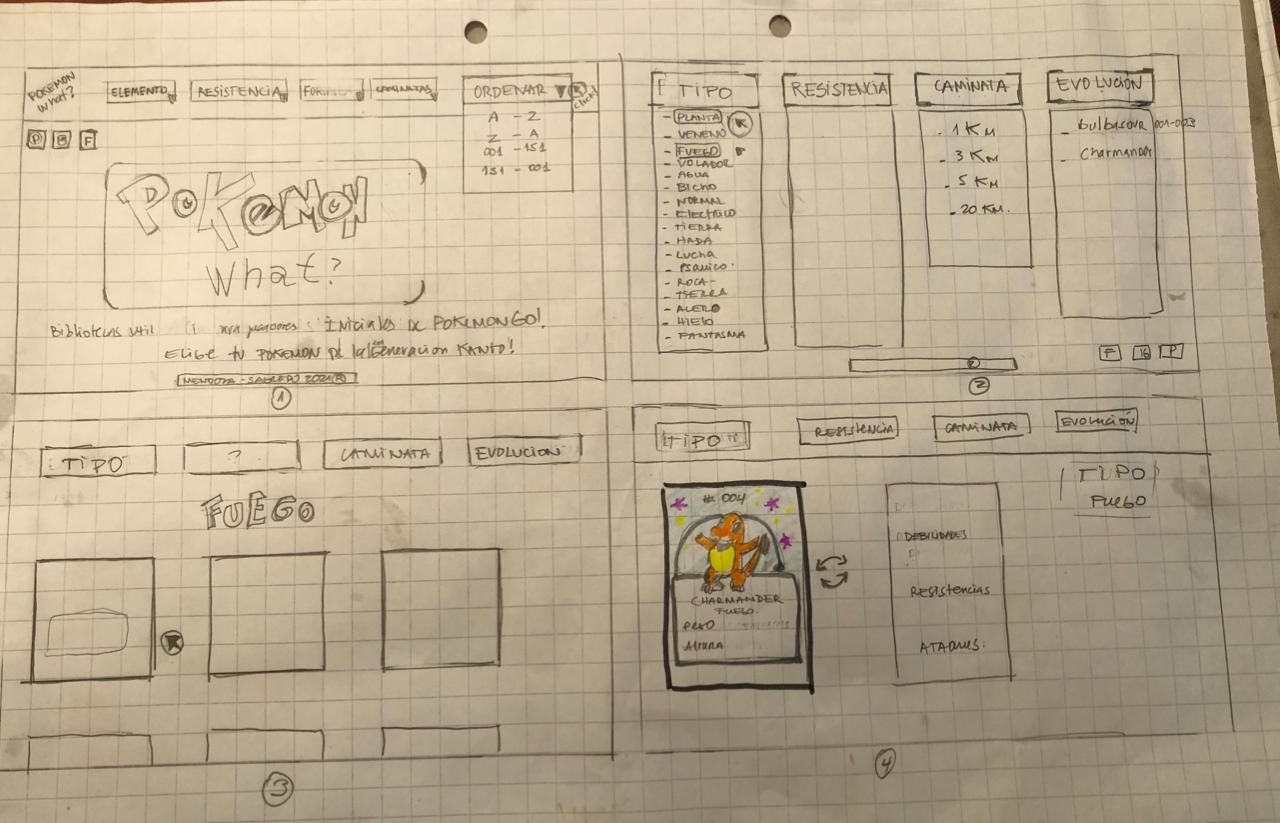 POKEMON
What?
ELEMENTO
RESISTENCIA
CAMINATAS
ORDENAR
click!
A - Z
Z - A
001 - 151
151 - 001
P B F
POKEMON
What?
Bibliotecas util
INICIALES DE POKEMON GO!
Elige tu POKEMON de la 1era Generacion KANTO!
1
TIPO
RESISTENCIA
CAMINATA
EVOLUCION
- PLANTA
- VENENO
- FUEGO
- VOLADOR
- AGUA
- Bicho
- NORMAL
- Electrico
- TIERRA
- HADA
- Lucha
- Psiquico
- ROCA -
- TIERRA
- ACERO
- HIELO
- FANTASMA
- 1 KM
- 3 KM
- 5 KM
- 20 KM.
- bulbasaur 001-003
- Charmander
F IG P
2
TIPO
?
CAMINATA
EVOLUCION
FUEGO
3
TIPO
RESISTENCIA
CAMINATA
EVOLUCIÓN
# 004
CHARMANDER
FUEGO.
PESO
Altura
DEBILIDADES
RESISTENCIAS
ATAQUES:
TIPO
FUEGO
4